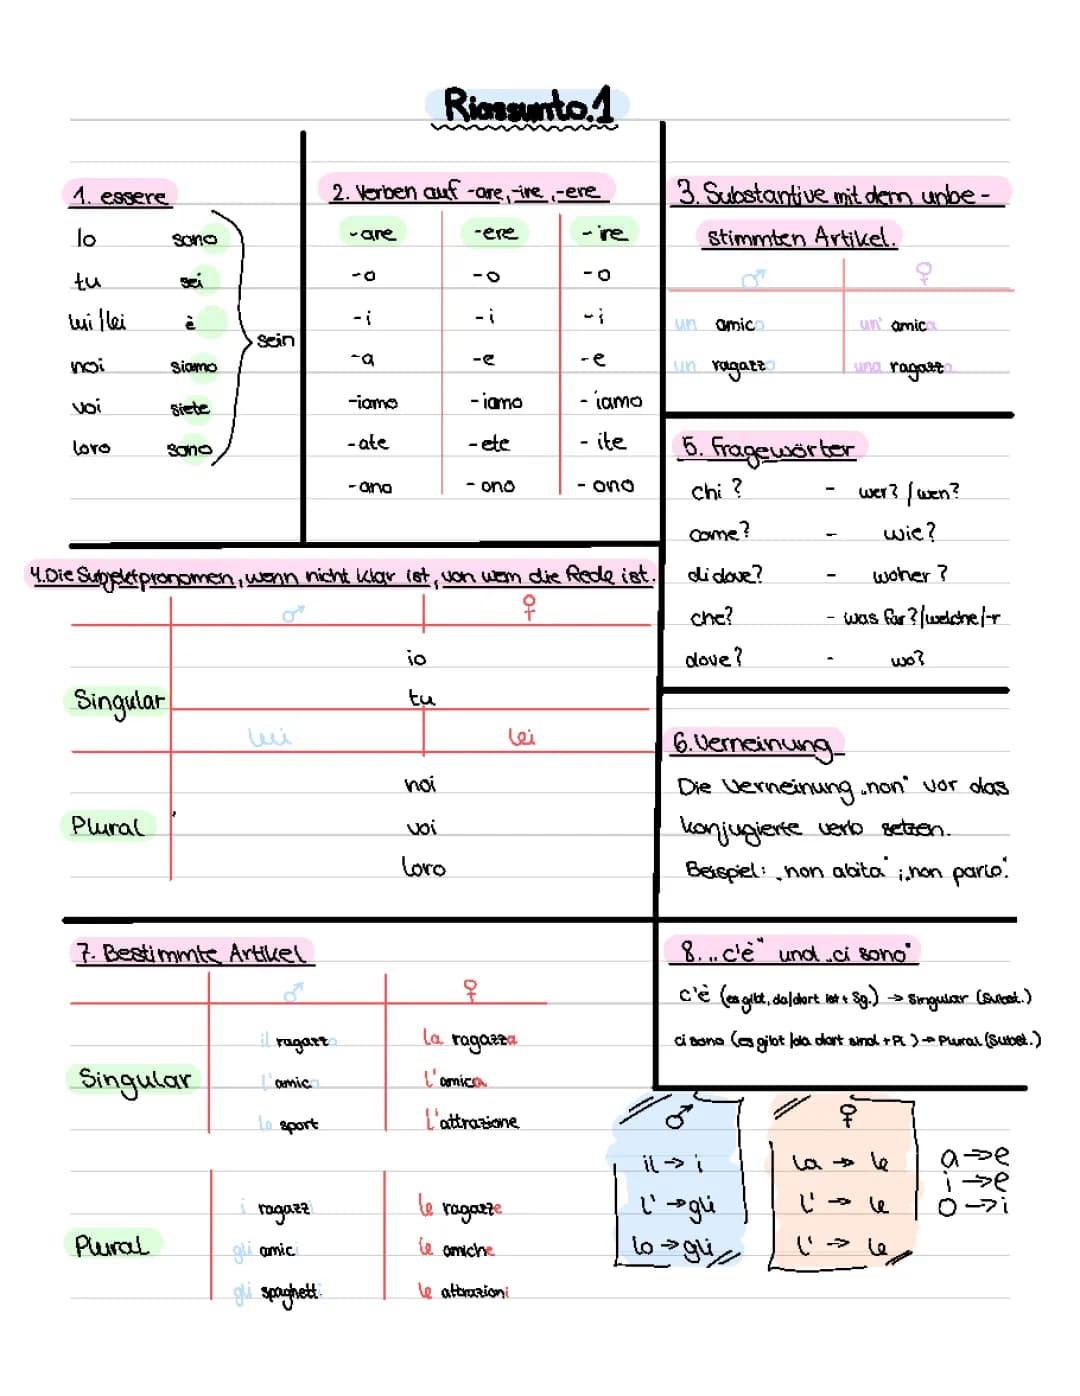 Riassunto.1
1. essere
Io sono
tu sei
lui/lei è
noi siamo
voi siete
loro sono
sein
2. Verben auf -are, -ire, -ere
-are -ere -ire
-o -o -o
-i -i -i
-a -e -e
-iamo -iamo -iamo
-ate -ete -ite
-ano -ono -ono
3. Substantive mit dem unbe-
stimmten Artikel.
♂ ♀
un amico un' amica
un ragazzo una ragazza
4. Die Subjektpronomen, wenn nicht klar ist, von wem die Rede ist.
♂ ♀
io
Singular tu
lui lei
noi
Plural voi
loro
5. Fragewörter
chi? - wer? / wen?
come? - wie?
di dove? - woher?
che? - was für?/welche/-r
dove? - wo?
6. Verneinung
Die Verneinung „non" vor das
konjugierte verb setzen.
Beispiel: „non abita" ; „non parlo".
7. Bestimmte Artikel
♂ ♀
il ragazzo la ragazza
Singular l'amico l'amica
lo sport l'attrazione
i ragazzi le ragazze
Plural gli amici le amiche
gli spaghetti le attrazioni
8. „c'è" und „ci sono"
c'è (es gibt, da/dort ist + Sg.) → Singular (Subst.)
ci sono (es gibt /da dort sind + Pl.) → Plural (Subst.)
♂
il → i
l' → gli
lo → gli
♀
la → le
l' → le
l' → le
a → e
i → e
o → i